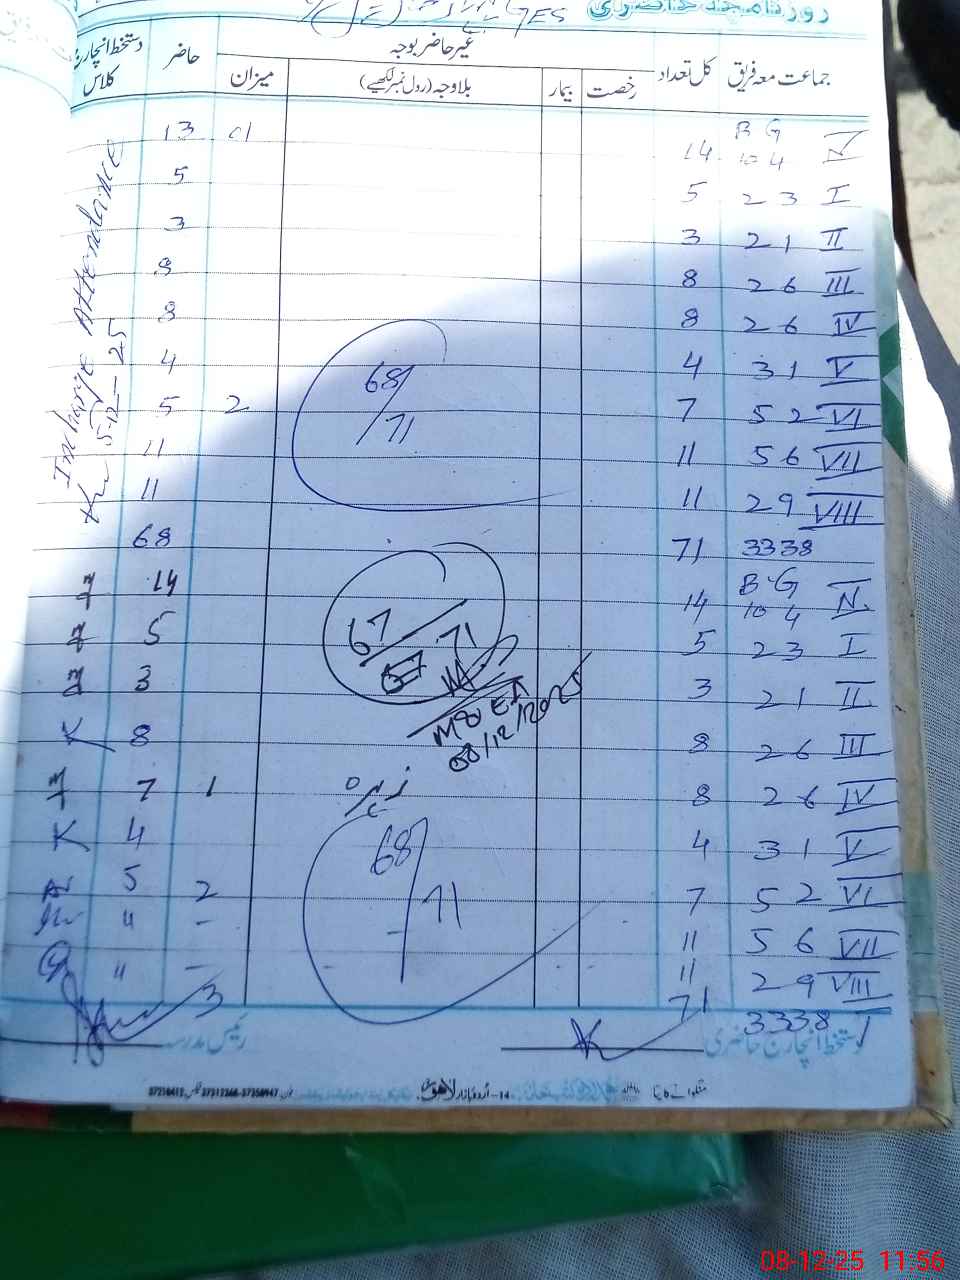 روزنامچہ حاضری
جماعت معہ فریق کل تعداد غیر حاضر بوجہ حاضر دستخط انچارج کلاس
رخصت بیمار بلاوجہ (رول نمبر لکھیے) میزان
B G
N 10 4 14 01 13
I 2 3 5 5
II 2 1 3 3
III 2 6 8 8
IV 2 6 8 8
V 3 1 4 4
VI 5 2 7 2 5
VII 5 6 11 11
VIII 2 9 11 11
33 38 71 68
68/71
Incharge Attendance
5-12-25
B G
N 10 4 14 14
I 2 3 5 5
II 2 1 3 3
III 2 6 8 K 8
IV 2 6 8 1 7
V 3 1 4 K 4
VI 5 2 7 2 5
VII 5 6 11 - 11
VIII 2 9 11 - 11
33 38 71 3
67/71
67
08/12/2025
68/71
دستخط انچارج حاضری رئیس مدرسہ
08-12-25 11:56